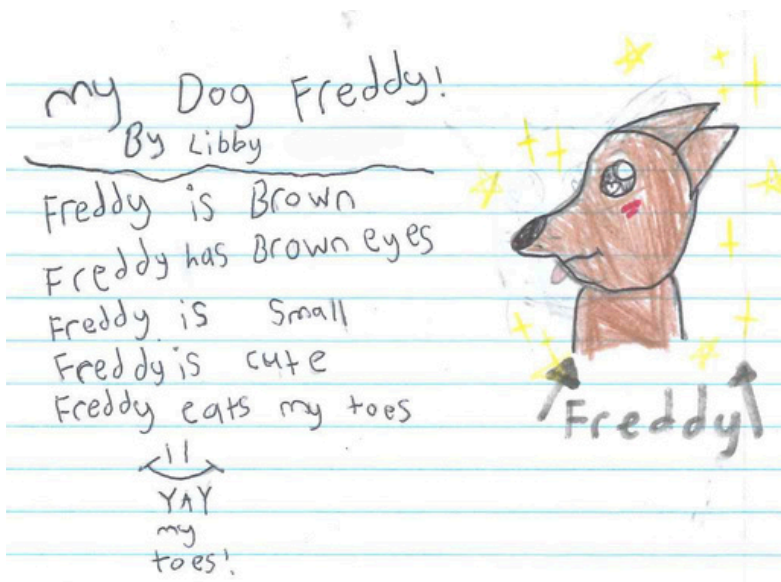 my Dog Freddy!
By Libby
Freddy is Brown
Freddy has Brown eyes
Freddy is Small
Freddy is cute
Freddy eats my toes
YAY
my
toes!
Freddy